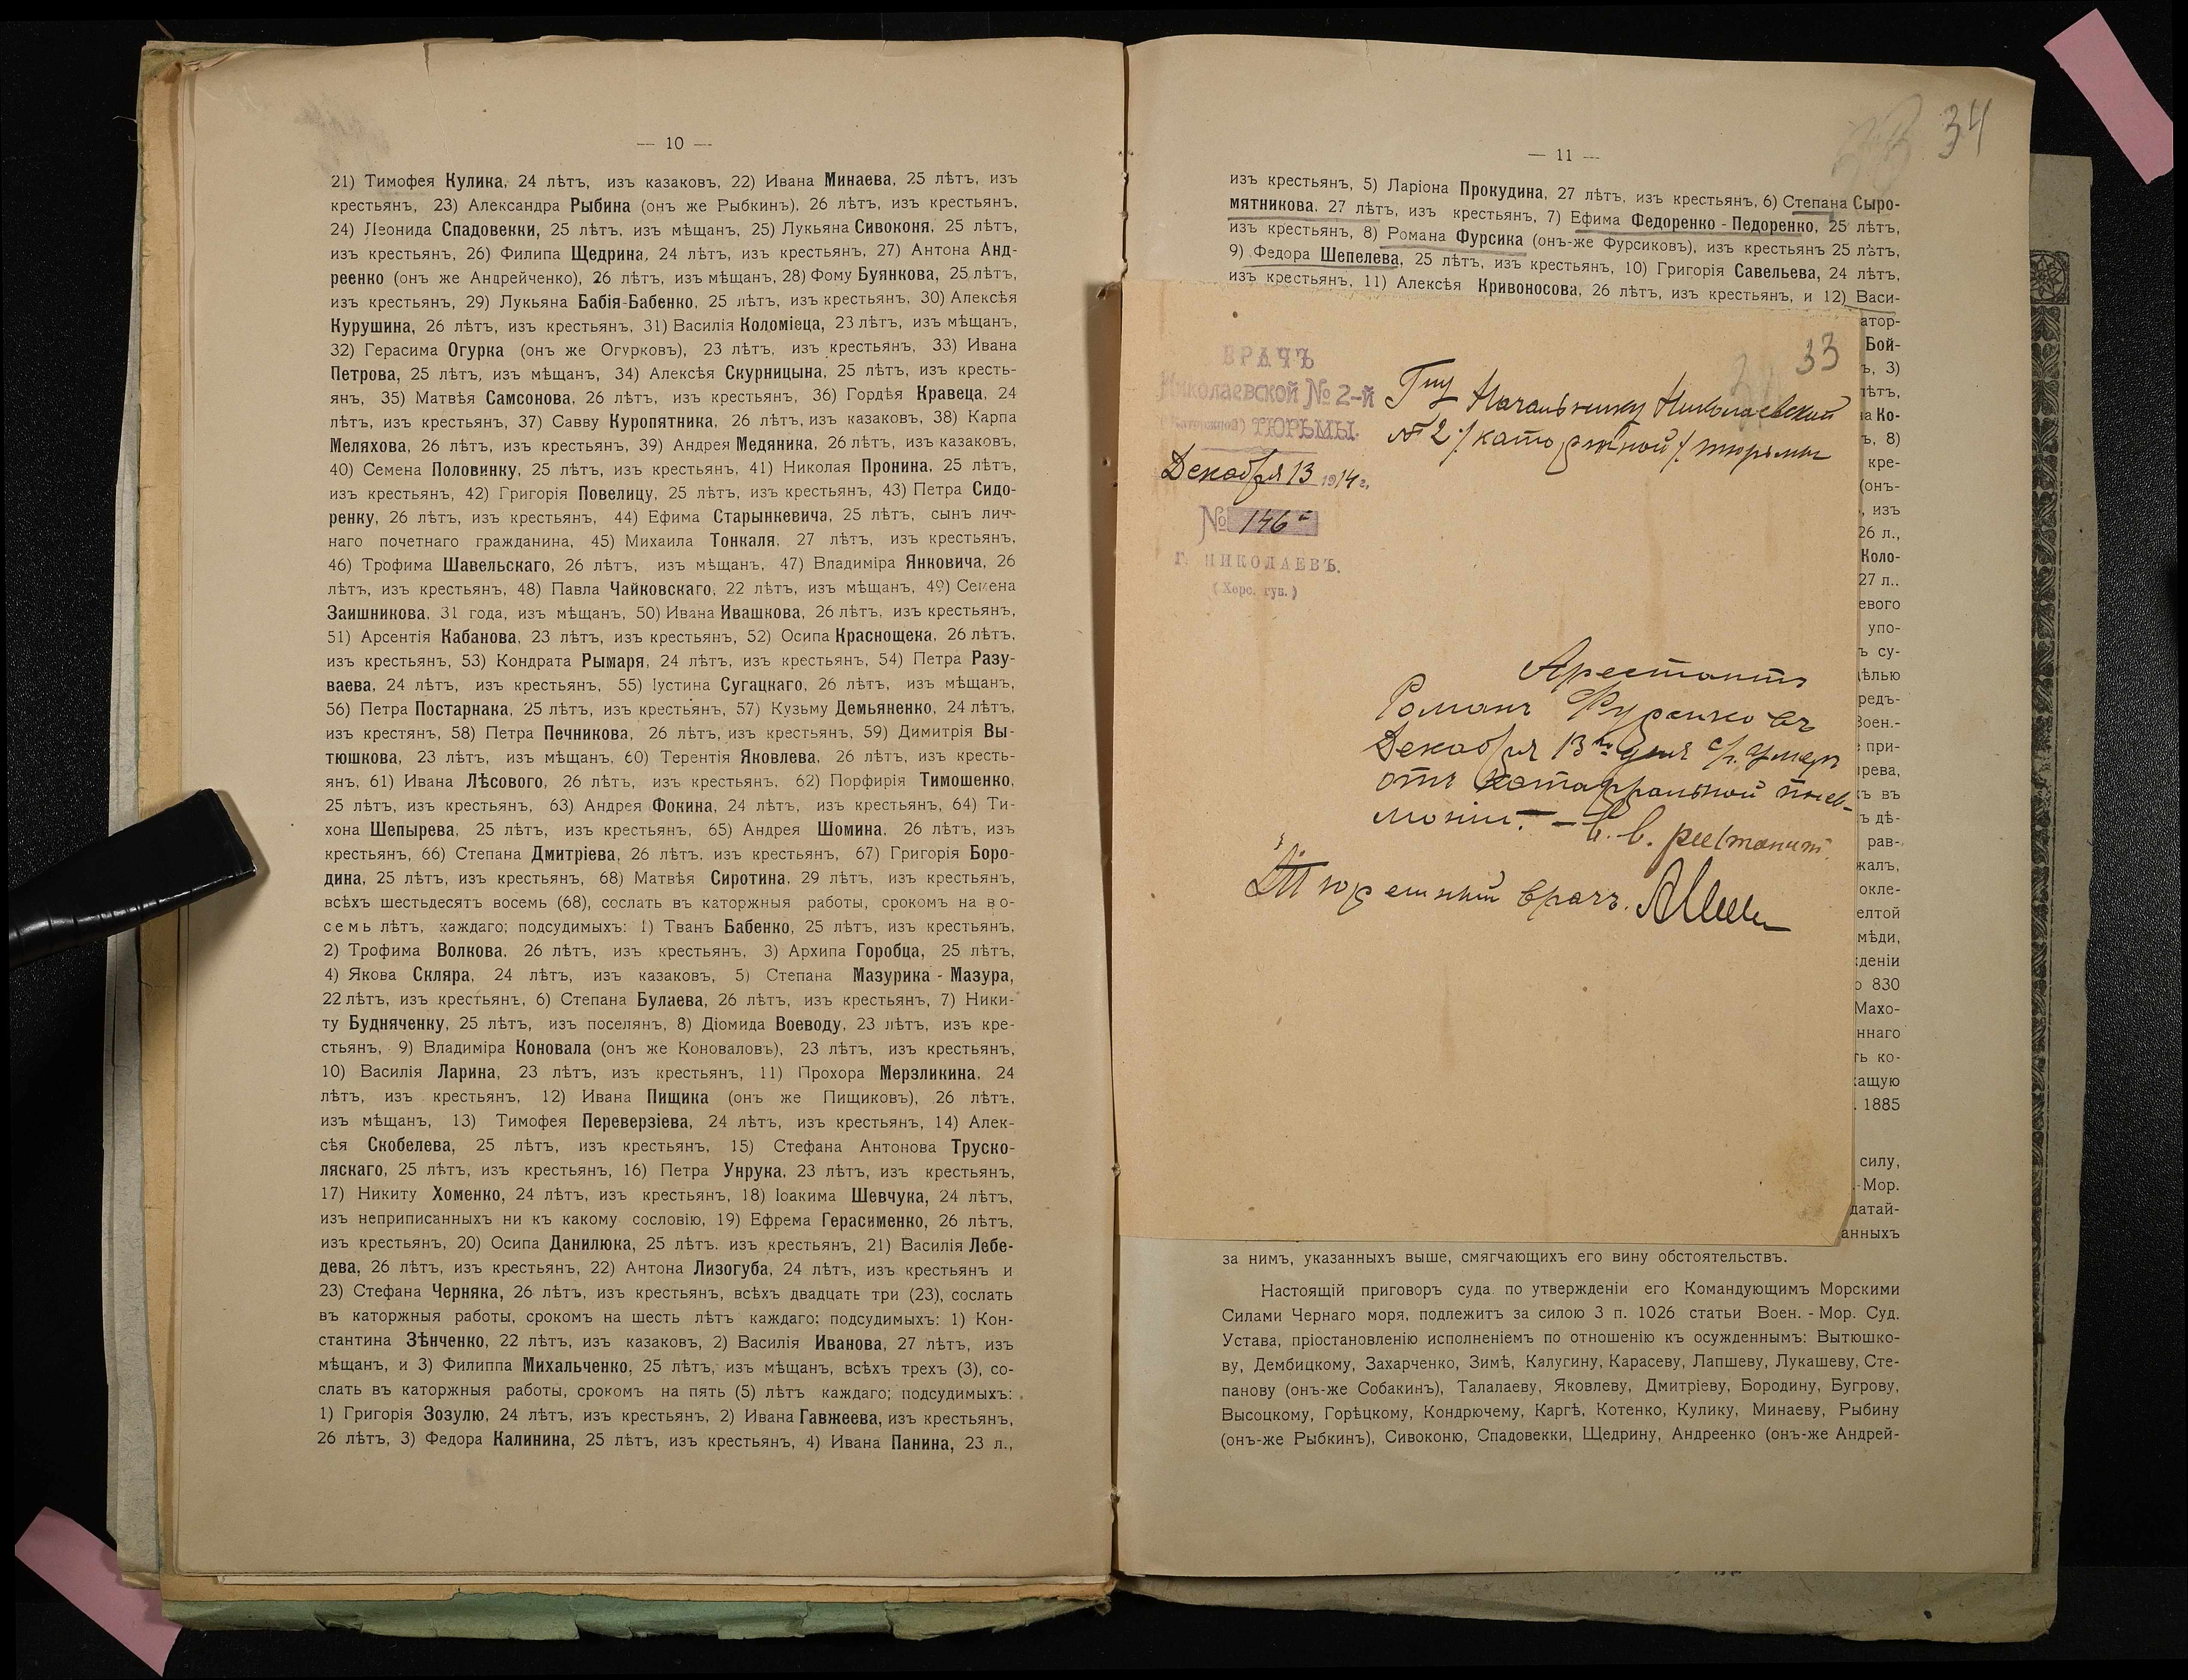 — 10 —
21) Тимофея Кулика, 24 лѣтъ, изъ казаковъ, 22) Ивана Минаева, 25 лѣтъ, изъ
крестьянъ, 23) Александра Рыбина (онъ же Рыбкинъ), 26 лѣтъ, изъ крестьянъ,
24) Леонида Спадовекки, 25 лѣтъ, изъ мѣщанъ, 25) Лукьяна Сивоконя, 25 лѣтъ,
изъ крестьянъ, 26) Филипа Щедрина, 24 лѣтъ, изъ крестьянъ, 27) Антона Анд-
реенко (онъ же Андрейченко), 26 лѣтъ, изъ мѣщанъ, 28) Фому Буянкова, 25 лѣтъ,
изъ крестьянъ, 29) Лукьяна Бабія-Бабенко, 25 лѣтъ, изъ крестьянъ, 30) Алексѣя
Курушина, 26 лѣтъ, изъ крестьянъ, 31) Василія Коломіеца, 23 лѣтъ, изъ мѣщанъ,
32) Герасима Огурка (онъ же Огурковъ), 23 лѣтъ, изъ крестьянъ, 33) Ивана
Петрова, 25 лѣтъ, изъ мѣщанъ, 34) Алексѣя Скурницына, 25 лѣтъ, изъ кресть-
янъ, 35) Матвѣя Самсонова, 26 лѣтъ, изъ крестьянъ, 36) Гордѣя Кравеца, 24
лѣтъ, изъ крестьянъ, 37) Савву Куропятника, 26 лѣтъ, изъ казаковъ, 38) Карпа
Меляхова, 26 лѣтъ, изъ крестьянъ, 39) Андрея Медяника, 26 лѣтъ, изъ казаковъ,
40) Семена Половинку, 25 лѣтъ, изъ крестьянъ, 41) Николая Пронина, 25 лѣтъ,
изъ крестьянъ, 42) Григорія Повелицу, 25 лѣтъ, изъ крестьянъ, 43) Петра Сидо-
ренку, 26 лѣтъ, изъ крестьянъ, 44) Ефима Старынкевича, 25 лѣтъ, сынъ лич-
наго почетнаго гражданина, 45) Михаила Тонкаля, 27 лѣтъ, изъ крестьянъ,
46) Трофима Шавельскаго, 26 лѣтъ, изъ мѣщанъ, 47) Владиміра Янковича, 26
лѣтъ, изъ крестьянъ, 48) Павла Чайковскаго, 22 лѣтъ, изъ мѣщанъ, 49) Семена
Заишникова, 31 года, изъ мѣщанъ, 50) Ивана Ивашкова, 26 лѣтъ, изъ крестьянъ,
51) Арсентія Кабанова, 23 лѣтъ, изъ крестьянъ, 52) Осипа Краснощека, 26 лѣтъ,
изъ крестьянъ, 53) Кондрата Рымаря, 24 лѣтъ, изъ крестьянъ, 54) Петра Разу-
ваева, 24 лѣтъ, изъ крестьянъ, 55) Іустина Сугацкаго, 26 лѣтъ, изъ мѣщанъ,
56) Петра Постарнака, 25 лѣтъ, изъ крестьянъ, 57) Кузьму Демьяненко, 24 лѣтъ,
изъ крестянъ, 58) Петра Печникова, 26 лѣтъ, изъ крестьянъ, 59) Димитрія Вы-
тюшкова, 23 лѣтъ, изъ мѣщанъ, 60) Терентія Яковлева, 26 лѣтъ, изъ кресть-
янъ, 61) Ивана Лѣсового, 26 лѣтъ, изъ крестьянъ, 62) Порфирія Тимошенко,
25 лѣтъ, изъ крестьянъ, 63) Андрея Фокина, 24 лѣтъ, изъ крестьянъ, 64) Ти-
хона Шепырева, 25 лѣтъ, изъ крестьянъ, 65) Андрея Шомина, 26 лѣтъ, изъ
крестьянъ, 66) Степана Дмитріева, 26 лѣтъ, изъ крестьянъ, 67) Григорія Боро-
дина, 25 лѣтъ, изъ крестьянъ, 68) Матвѣя Сиротина, 29 лѣтъ, изъ крестьянъ,
всѣхъ шестьдесятъ восемь (68), сослать въ каторжныя работы, срокомъ на во-
семь лѣтъ, каждаго; подсудимыхъ: 1) Тванъ Бабенко, 25 лѣтъ, изъ крестьянъ,
2) Трофима Волкова, 26 лѣтъ, изъ крестьянъ, 3) Архипа Горобца, 25 лѣтъ,
4) Якова Скляра, 24 лѣтъ, изъ казаковъ, 5) Степана Мазурика - Мазура,
22 лѣтъ, изъ крестьянъ, 6) Степана Булаева, 26 лѣтъ, изъ крестьянъ, 7) Ники-
ту Будняченку, 25 лѣтъ, изъ поселянъ, 8) Діомида Воеводу, 23 лѣтъ, изъ кре-
стьянъ, 9) Владиміра Коновала (онъ же Коноваловъ), 23 лѣтъ, изъ крестьянъ,
10) Василія Ларина, 23 лѣтъ, изъ крестьянъ, 11) Прохора Мерзликина, 24
лѣтъ, изъ крестьянъ, 12) Ивана Пищика (онъ же Пищиковъ), 26 лѣтъ,
изъ мѣщанъ, 13) Тимофея Переверзіева, 24 лѣтъ, изъ крестьянъ, 14) Алек-
сѣя Скобелева, 25 лѣтъ, изъ крестьянъ, 15) Стефана Антонова Труско-
ляскаго, 25 лѣтъ, изъ крестьянъ, 16) Петра Унрука, 23 лѣтъ, изъ крестьянъ,
17) Никиту Хоменко, 24 лѣтъ, изъ крестьянъ, 18) Іоакима Шевчука, 24 лѣтъ,
изъ неприписанныхъ ни къ какому сословію, 19) Ефрема Герасименко, 26 лѣтъ,
изъ крестьянъ, 20) Осипа Данилюка, 25 лѣтъ. изъ крестьянъ, 21) Василія Лебе-
дева, 26 лѣтъ, изъ крестьянъ, 22) Антона Лизогуба, 24 лѣтъ, изъ крестьянъ и
23) Стефана Черняка, 26 лѣтъ, изъ крестьянъ, всѣхъ двадцать три (23), сослать
въ каторжныя работы, срокомъ на шесть лѣтъ каждаго; подсудимыхъ: 1) Кон-
стантина Зѣнченко, 22 лѣтъ, изъ казаковъ, 2) Василія Иванова, 27 лѣтъ, изъ
мѣщанъ, и 3) Филиппа Михальченко, 25 лѣтъ, изъ мѣщанъ, всѣхъ трехъ (3), со-
слать въ каторжныя работы, срокомъ на пять (5) лѣтъ каждаго; подсудимыхъ:
1) Григорія Зозулю, 24 лѣтъ, изъ крестьянъ, 2) Ивана Гавжеева, изъ крестьянъ,
26 лѣтъ, 3) Федора Калинина, 25 лѣтъ, изъ крестьянъ, 4) Ивана Панина, 23 л.,
34
— 11 —
изъ крестьянъ, 5) Ларіона Прокудина, 27 лѣтъ, изъ крестьянъ, 6) Степана Сыро-
мятникова, 27 лѣтъ, изъ крестьянъ, 7) Ефима Федоренко - Педоренко, 25 лѣтъ,
изъ крестьянъ, 8) Романа Фурсика (онъ-же Фурсиковъ), изъ крестьянъ 25 лѣтъ,
9) Федора Шепелева, 25 лѣтъ, изъ крестьянъ, 10) Григорія Савельева, 24 лѣтъ,
изъ крестьянъ, 11) Алексѣя Кривоносова, 26 лѣтъ, изъ крестьянъ, и 12) Васи-
33
ВРАЧЪ
Николаевской № 2-й
(Каторжной) ТЮРЬМЫ.
Декабря 13 1914 г.
№ 146
Г. НИКОЛАЕВЪ.
(Херс. губ.)
Начальнику Николаевской
№ 2 /каторжной/ тюрьмы
Арестантъ
Романъ Фурсиковъ
Декабря 13го дня с/г. умеръ
отъ катарральной пнев-
моніи. –
Тюремный врачъ.
атор-
Бой-
ъ, 3)
лѣтъ,
на Ко-
ъ, 8)
кре-
(онъ-
, изъ
26 л.,
Коло-
27 л..
евого
упо-
ъ су-
цѣлью
редъ-
Воен.-
при-
ырева,
къ въ
ъ дѣ-
рав-
жалъ,
окле-
елтой
мѣди,
деніи
о 830
Махо-
ннаго
ть ко-
кащую
. 1885
силу,
.-Мор.
датай-
анныхъ
за нимъ, указанныхъ выше, смягчающихъ его вину обстоятельствъ.
Настоящій приговоръ суда. по утвержденіи его Командующимъ Морскими
Силами Чернаго моря, подлежитъ за силою 3 п. 1026 статьи Воен. - Мор. Суд.
Устава, пріостановленію исполненіемъ по отношенію къ осужденнымъ: Вытюшко-
ву, Дембицкому, Захарченко, Зимѣ, Калугину, Карасеву, Лапшеву, Лукашеву, Сте-
панову (онъ-же Собакинъ), Талалаеву, Яковлеву, Дмитріеву, Бородину, Бугрову,
Высоцкому, Горѣцкому, Кондрючему, Каргѣ, Котенко, Кулику, Минаеву, Рыбину
(онъ-же Рыбкинъ), Сивоконю, Спадовекки, Щедрину, Андреенко (онъ-же Андрей-